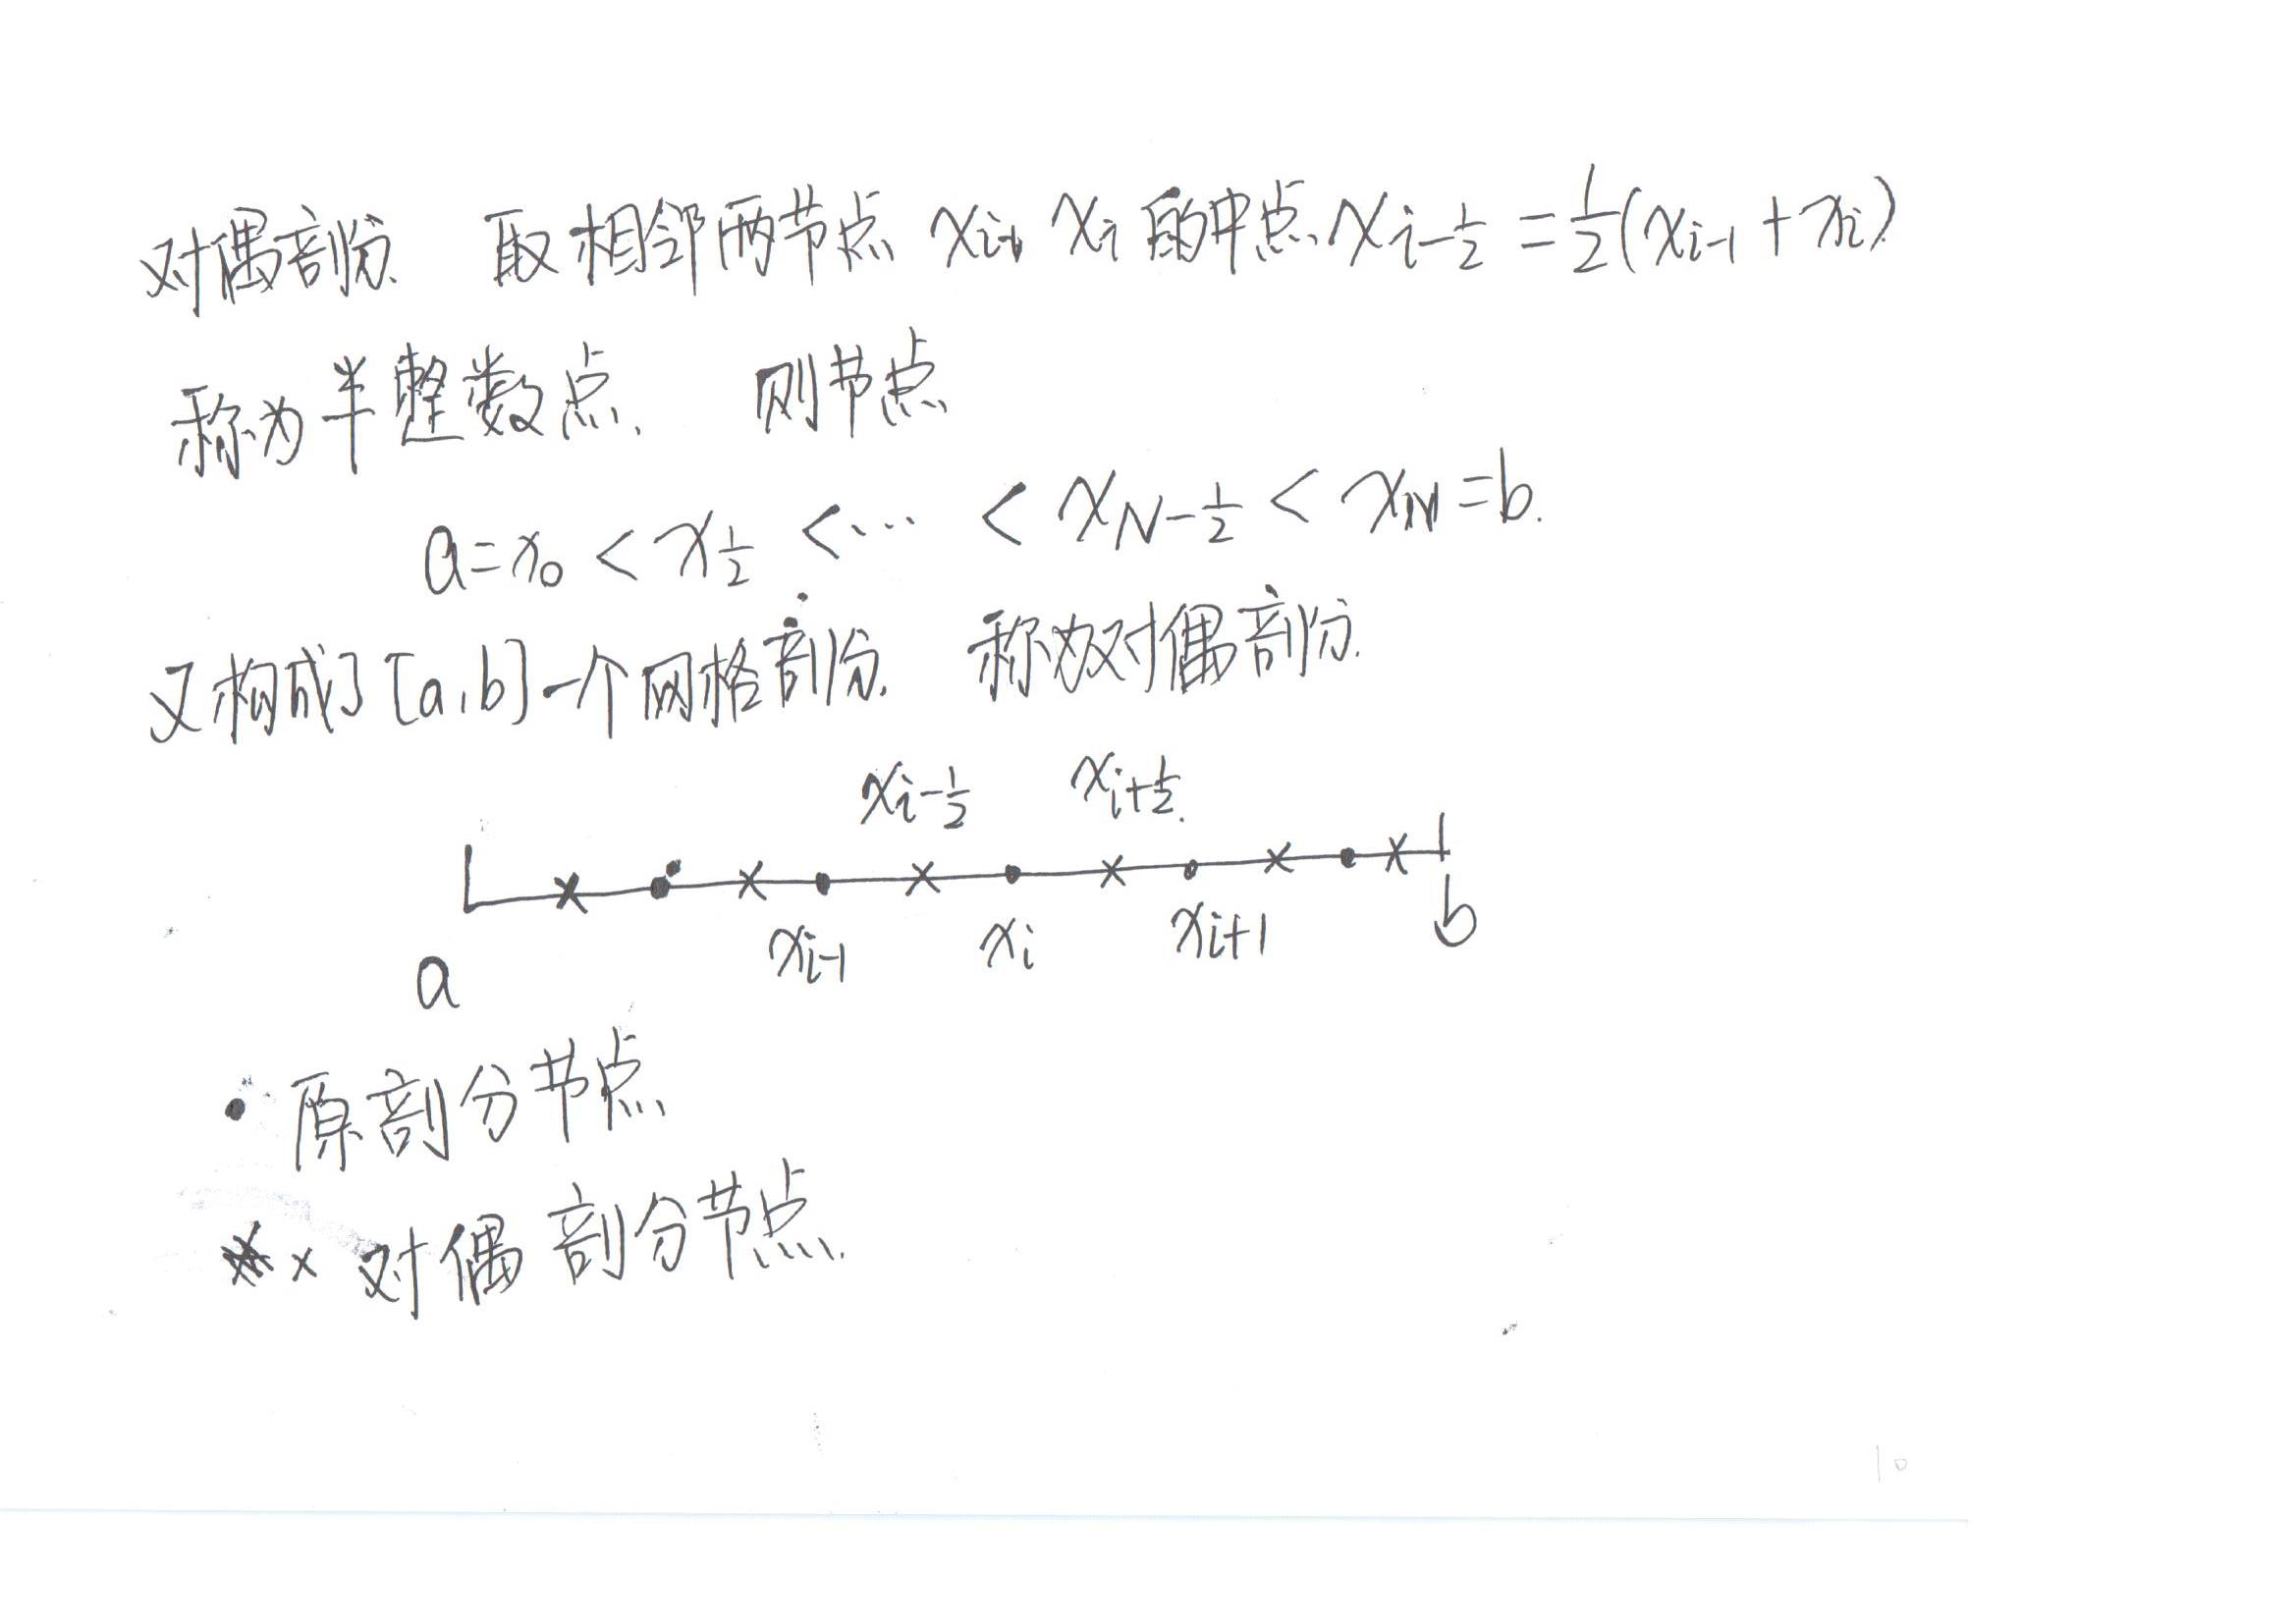 对偶剖份. 取相邻两节点 x_{i-1}, x_i 的中点 x_{i-\frac{1}{2}} = \frac{1}{2}(x_{i-1} + x_i)
称为半整数点. 则节点
a = x_0 < x_{\frac{1}{2}} < ··· < x_{N-\frac{1}{2}} < x_N = b.
又构成了[a,b]一个网格剖份. 称为对偶剖份.
x_{i-\frac{1}{2}} x_{i+\frac{1}{2}}.
a x_{i-1} x_i x_{i+1} b
• 原剖分节点.
× 对偶剖分节点.
10